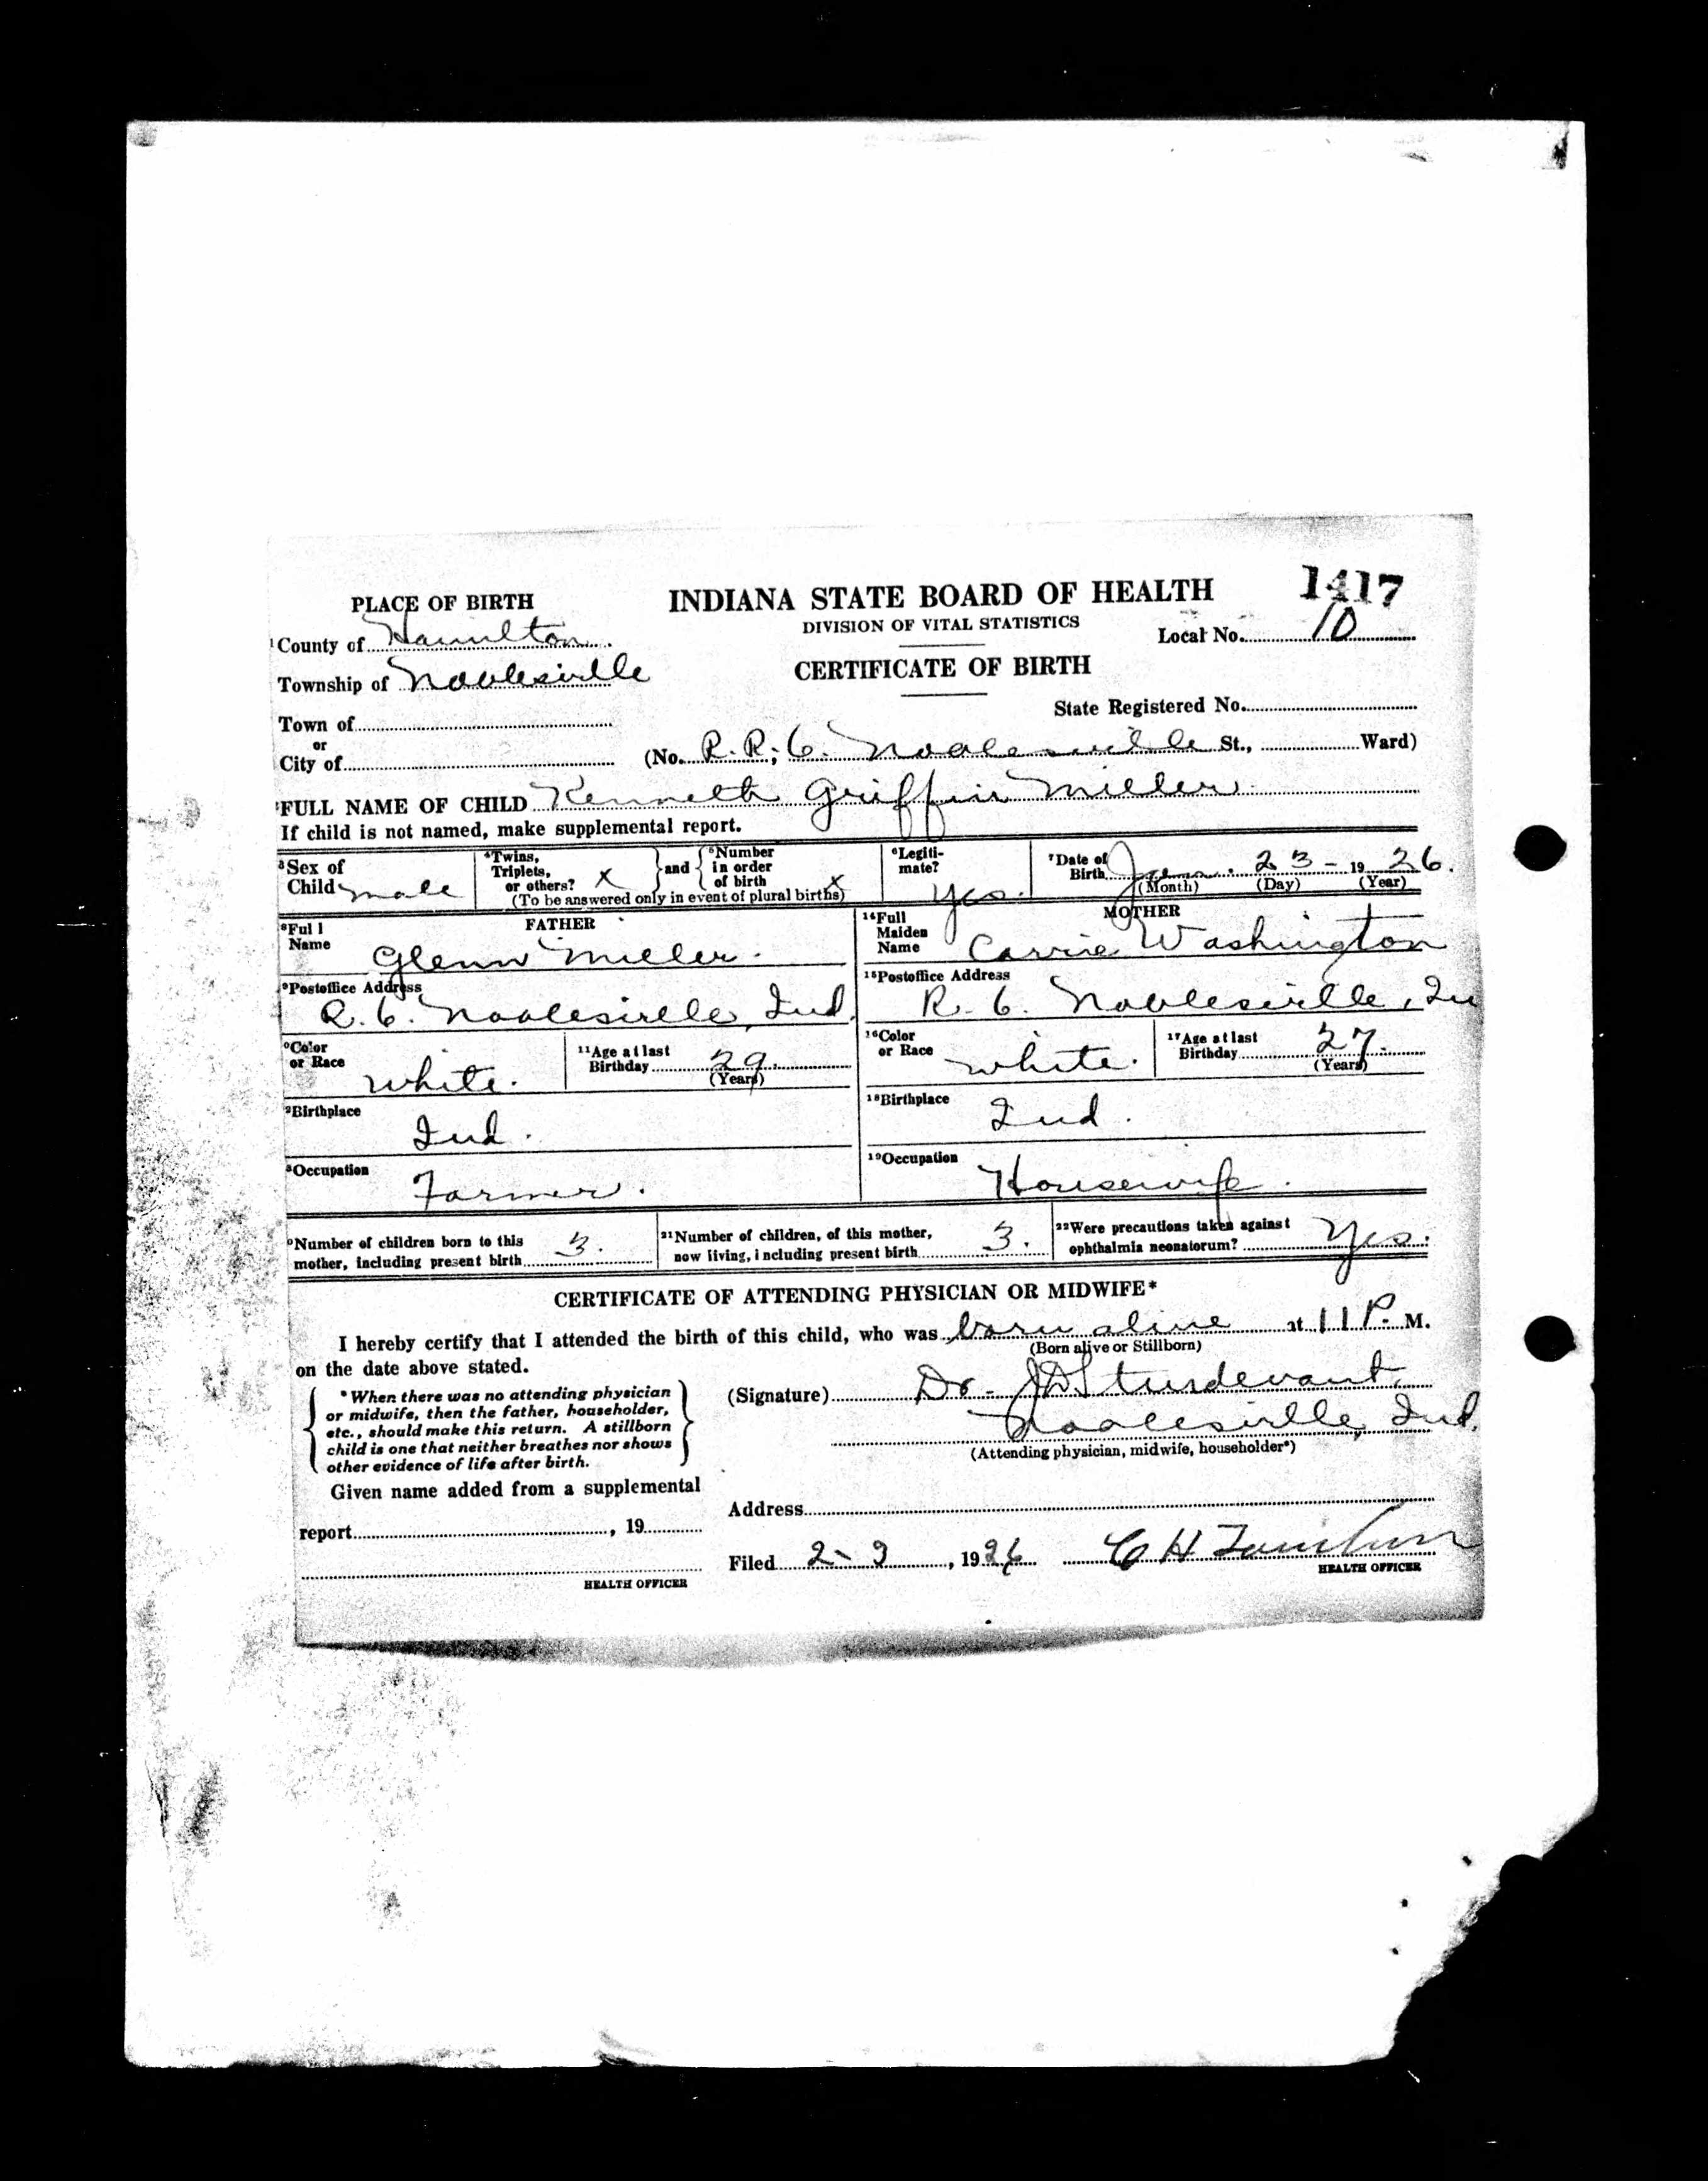 PLACE OF BIRTH
INDIANA STATE BOARD OF HEALTH
1417
DIVISION OF VITAL STATISTICS
1County of Hamilton
Local No. 10
Township of Noblesville
CERTIFICATE OF BIRTH
State Registered No.
Town of
or
City of
(No. R. R. 6. Noblesville St., Ward)
FULL NAME OF CHILD Kenneth Griffin Miller
If child is not named, make supplemental report.
3Sex of Child male
4Twins, Triplets, or others? X and 5Number in order of birth X
(To be answered only in event of plural births)
6Legitimate? Yes.
7Date of Birth Jan. 23 - 1926.
(Month) (Day) (Year)
FATHER
8Full Name Glenn Miller.
MOTHER
14Full Maiden Name Carrie Washington
9Postoffice Address
R. 6. Noblesville, Ind.
15Postoffice Address
R. 6. Noblesville, In
0Color or Race White.
11Age at last Birthday 29.
(Years)
16Color or Race White.
17Age at last Birthday 27.
(Years)
2Birthplace
Ind.
18Birthplace
Ind.
3Occupation
Farmer.
19Occupation
Housewife.
0Number of children born to this mother, including present birth 3.
21Number of children, of this mother, now living, including present birth 3.
22Were precautions taken against ophthalmia neonatorum? Yes.
CERTIFICATE OF ATTENDING PHYSICIAN OR MIDWIFE*
I hereby certify that I attended the birth of this child, who was born alive at 11 P. M.
(Born alive or Stillborn)
on the date above stated.
*When there was no attending physician
or midwife, then the father, householder,
etc., should make this return. A stillborn
child is one that neither breathes nor shows
other evidence of life after birth.
(Signature) Dr. JD Sturdevant,
Noblesville, Ind.
(Attending physician, midwife, householder*)
Given name added from a supplemental
report , 19
Address
Filed 2-3, 1926 C H
HEALTH OFFICER
HEALTH OFFICER